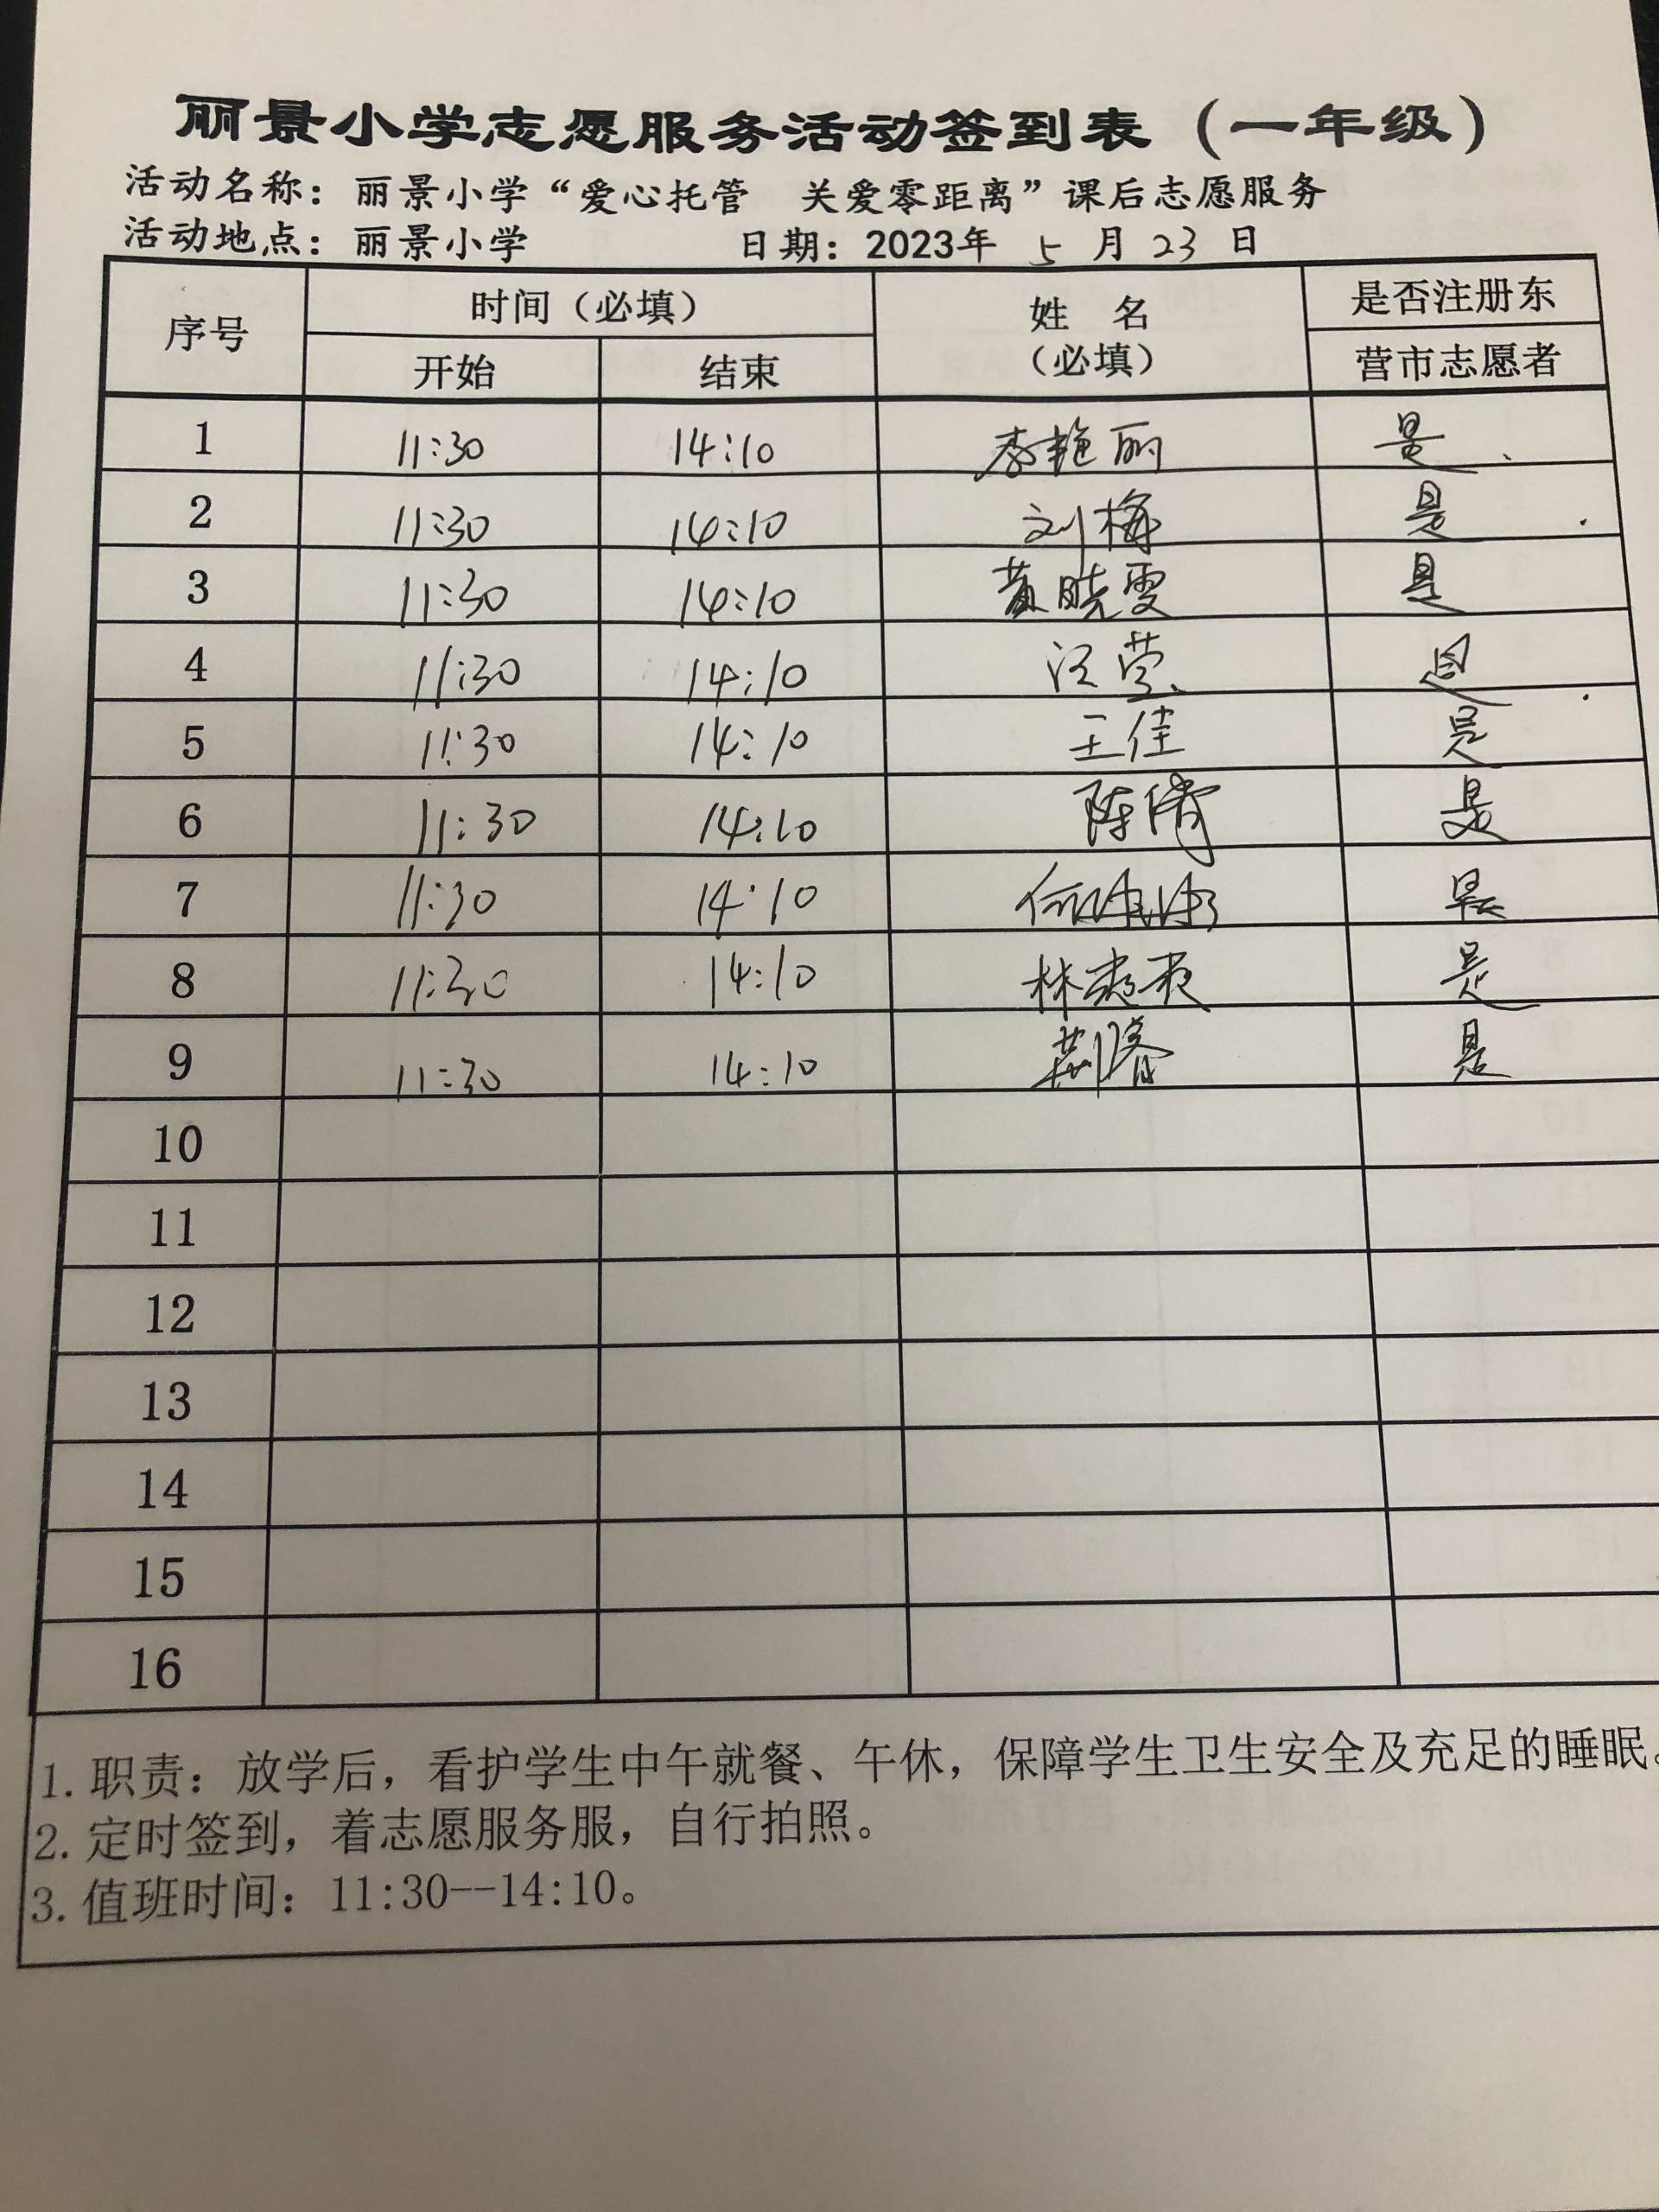 丽景小学志愿服务活动签到表（一年级）
活动名称：丽景小学“爱心托管 关爱零距离”课后志愿服务
活动地点：丽景小学 日期：2023年 5 月 23 日
序号 时间（必填） 姓 名 是否注册东
开始 结束 （必填） 营市志愿者
1 11:30 14:10 李艳丽 是
2 11:30 14:10 刘梅 是
3 11:30 14:10 黄晓雯 是
4 11:30 14:10 汪莹 是
5 11:30 14:10 王佳 是
6 11:30 14:10 陈倩 是
7 11:30 14:10 是
8 11:30 14:10 林 是
9 11:30 14:10 荆 是
10
11
12
13
14
15
16
1. 职责：放学后，看护学生中午就餐、午休，保障学生卫生安全及充足的睡眠。
2. 定时签到，着志愿服务服，自行拍照。
3. 值班时间：11:30--14:10。